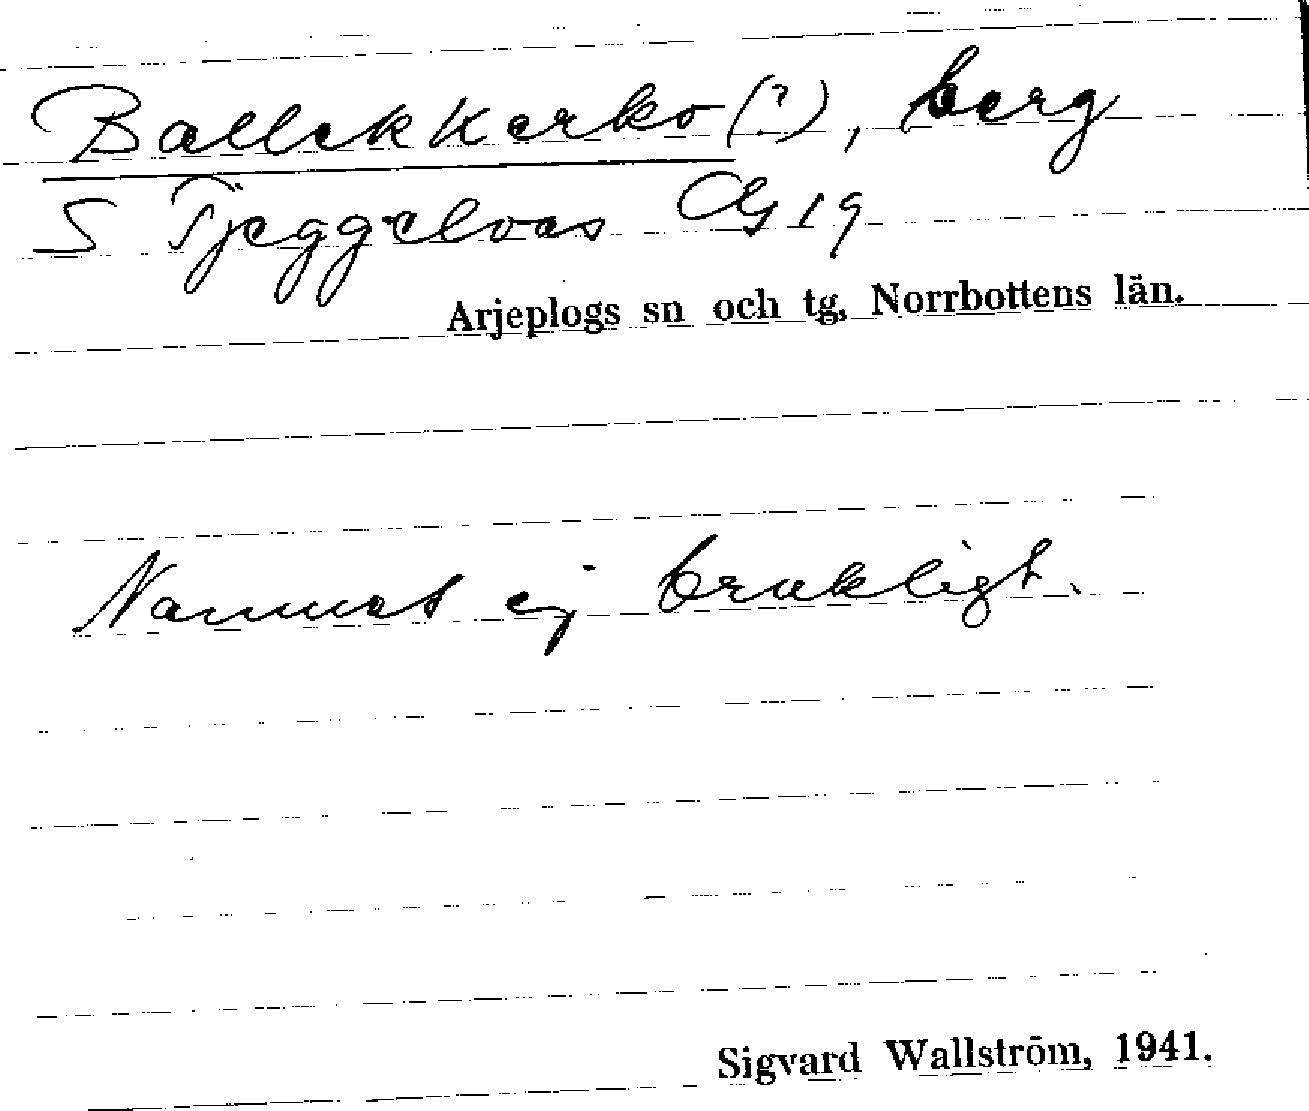 Ballek Kerko (?), berg
S Tjeggelvas CG 19
Arjeplogs sn och tg, Norrbottens län.
Namnet ej brukligt.
Sigvard Wallström, 1941.